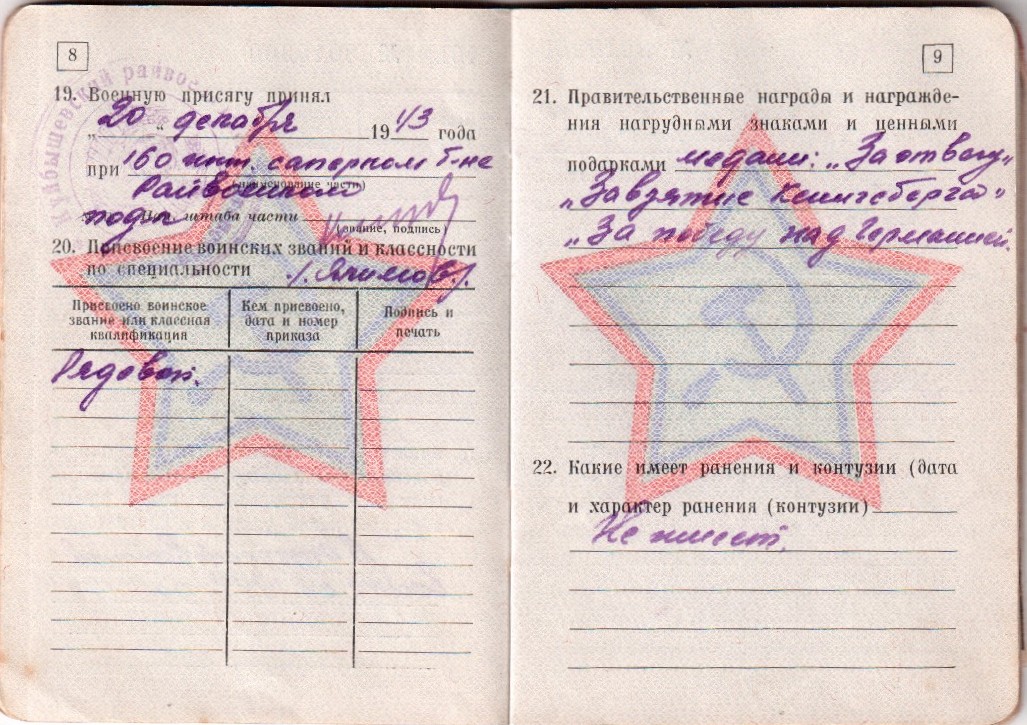 8
19. Военную присягу принял
„20“ декабря 1943 года
при 160 инт. саперном б-не
(наименование части)
Райвоенком
подп Нач. штаба части
(звание, подпись)
20. Присвоение воинских званий и классности
по специальности
Присвоено воинское звание или классная квалификация
Кем присвоено, дата и номер приказа
Подпись и печать
Рядовой.
Куйбышевский райвое
9
21. Правительственные награды и награжде-
ния нагрудными знаками и ценными
подарками медали: „За отвагу“
„За взятие Кенигсберга“
„За победу над Германией.
22. Какие имеет ранения и контузии (дата
и характер ранения (контузии)
Не имеет.